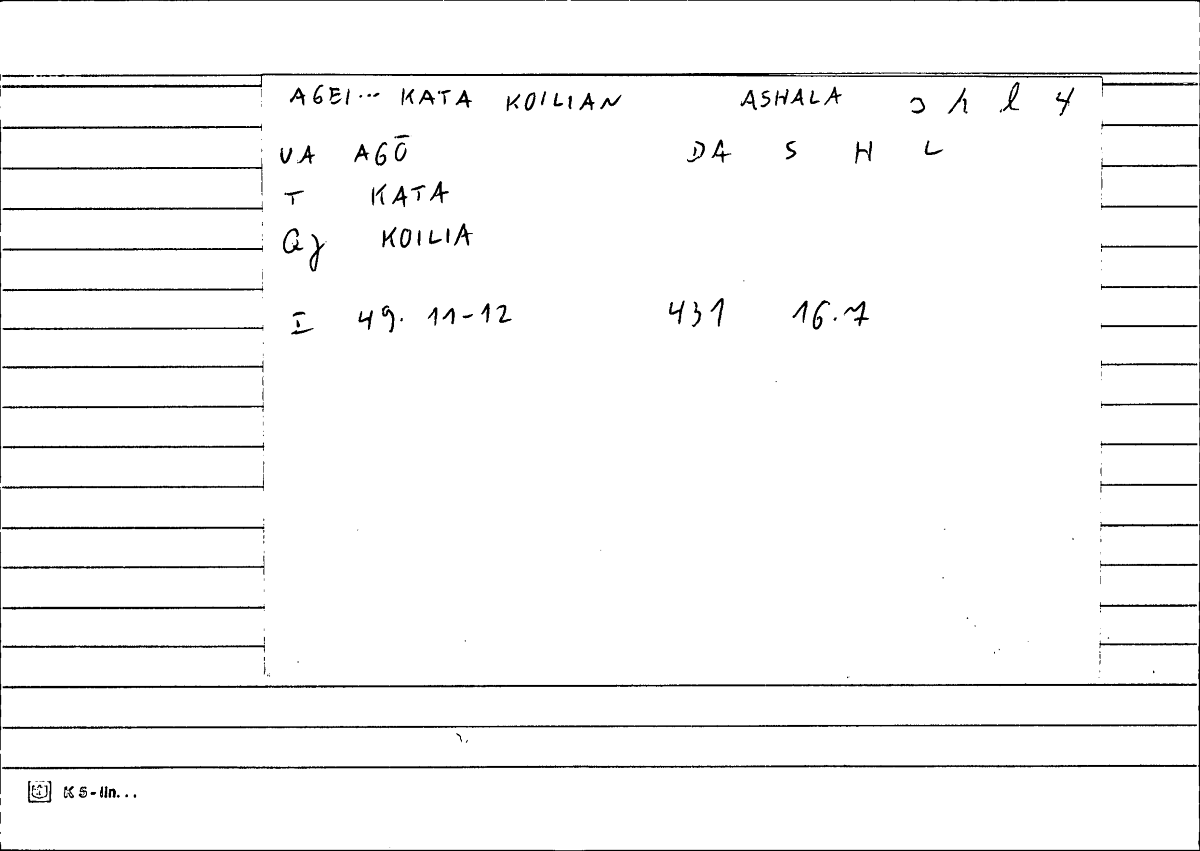 AGEI... KATA KOILIAN ASHALA ɔ h l 4
VA AGŌ DA S H L
T KATA
Qy KOILIA
I 49. 11-12 431 16.7
K5-lin...